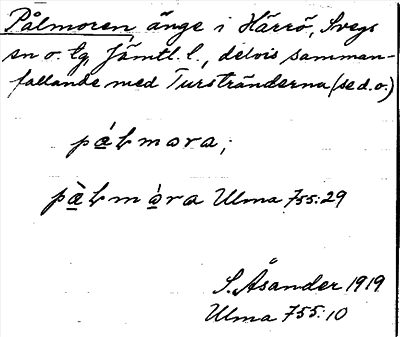 Pålmoren, änge i Härrö, Svegs
sn o. tg, Jämtl. l., delvis samman-
fallande med Turstränderna (se d.o.)
pálmora;
pàlmòra Ulma 755:29
S. Åsander 1919
Ulma 755:10